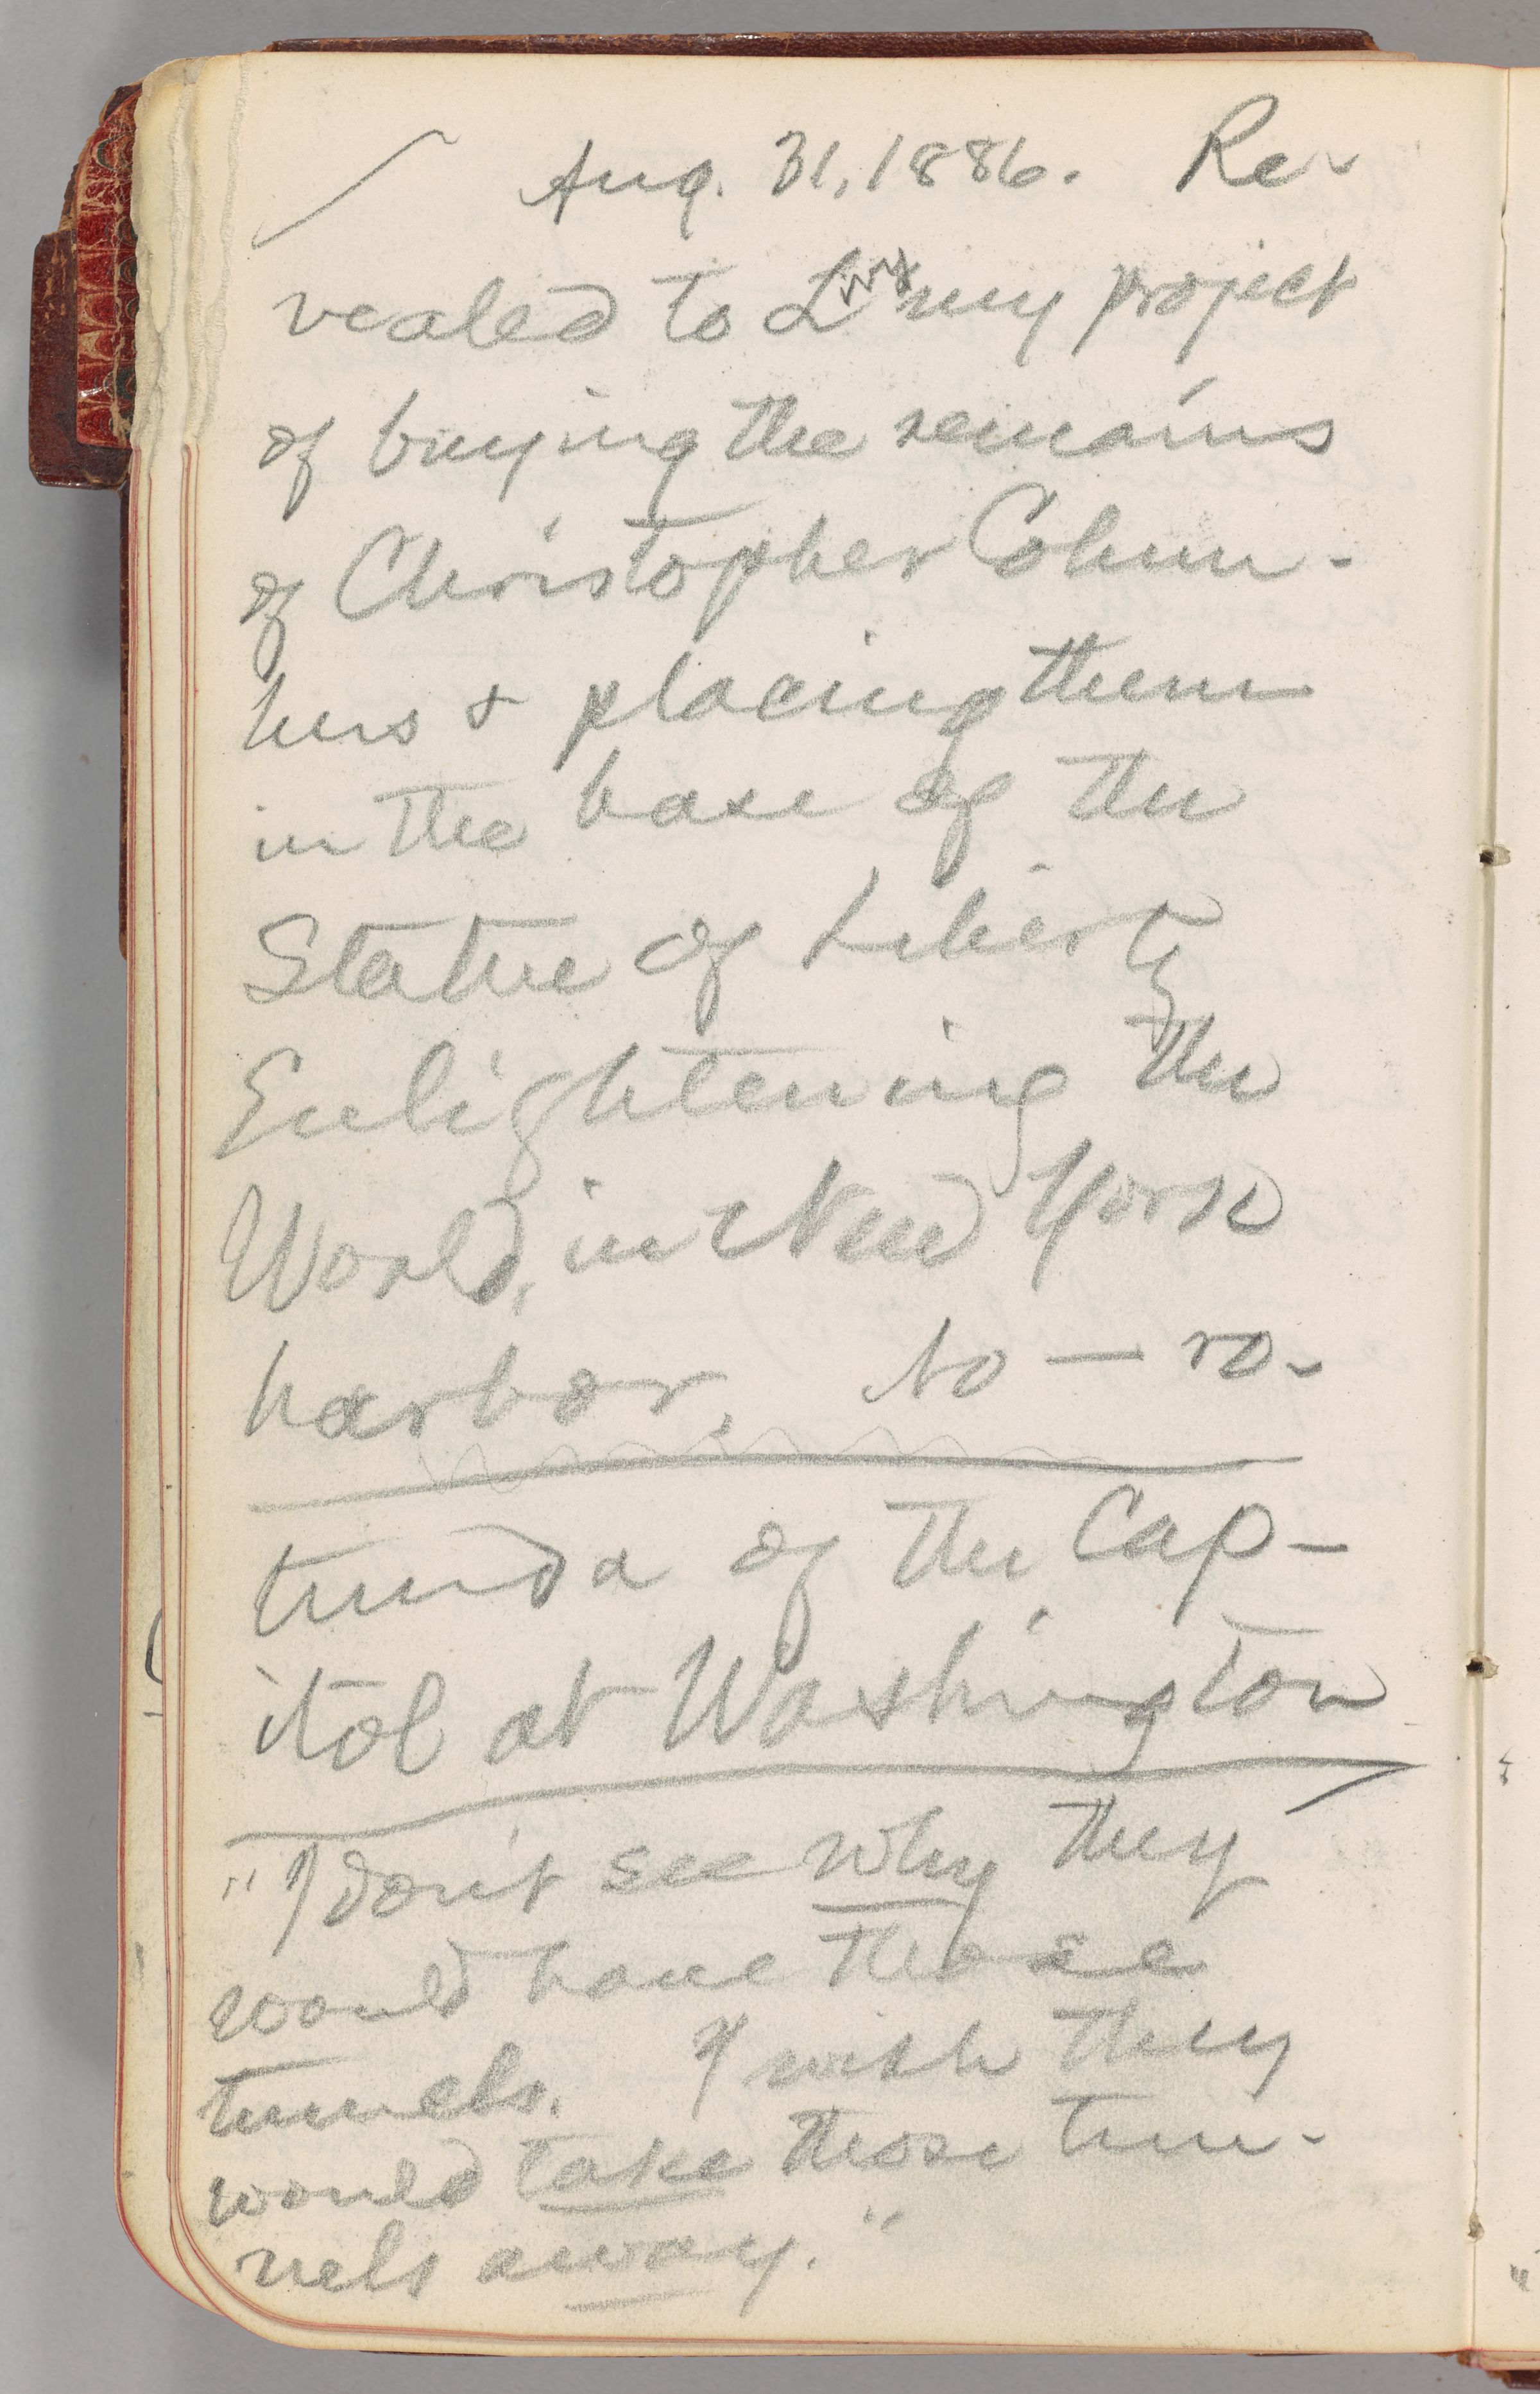 Aug. 31, 1886. Re-
vealed to L my project
of buying the remains
of Christopher Colum-
bus & placing them
in the base of the
Statue of Liberty
Enlightening the
World, in New York
harbor. No — ro-
tunda of the Cap-
itol at Washington
"I don't see why they
would have those
tunnels. I wish they
would take those tun-
nels away."